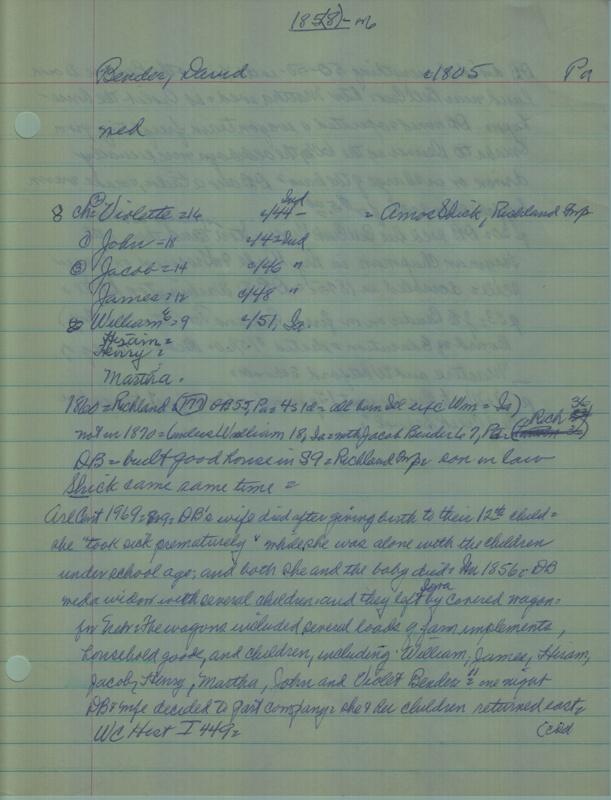 185(8)-m
Bender, David c1805 Pa
med
8 ch = ② Violette = 16 c/44- Ind = Amos Shick, Richland Twp
① John = 18 c/42 = Ind
③ Jacob = 14 c/46 "
James = 12 c/48 "
William E = 9 c/51, Ia
Hiram =
Henry =
Martha.
1860 = Richland (177) DB 55, Pa = 4s 1d = all born Ind exc Wm = Ia)
not in 1870 = William 18, Ia = with Jacob Bender 67, Pa = (Rich 36
DB = built good house in S9 = Richland Twp = son in law
Shick came same time =
Cent 1969 = DB's wife died after giving birth to their 12th child =
she "took sick prematurely" while she was alone with the children
under school age, and both she and the baby died = in 1856 = DB
med a widow with several children and they left Iowa by covered wagon =
for = The wagons included several loads of farm implements,
household goods, and children, including William, James, Hiram,
Jacob, Henry, Martha, John and Violet Bender" = one night
DB & wife decided to part company = she & her children returned east,
WC Hist I 449 = (ctd